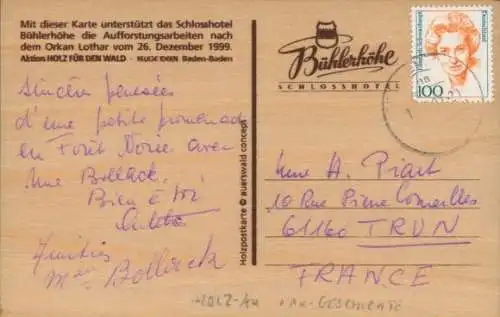 Mit dieser Karte unterstützt das Schlosshotel
Bühlerhöhe die Aufforstungsarbeiten nach
dem Orkan Lothar vom 26. Dezember 1999.
Aktion HOLZ FÜR DEN WALD - NEUE IDEEN Baden-Baden
Bühlerhöhe
SCHLOSSHOTEL
Deutschland
100
Holzpostkarte © auerswald concept
d'une petite promenade
en Forêt Noire avec
Mme Bollack.
Bien à toi
Amitiés
Bollack
Mme A. Piart
10 Rue Pierre Corneilles
61160 TRUN
FRANCE